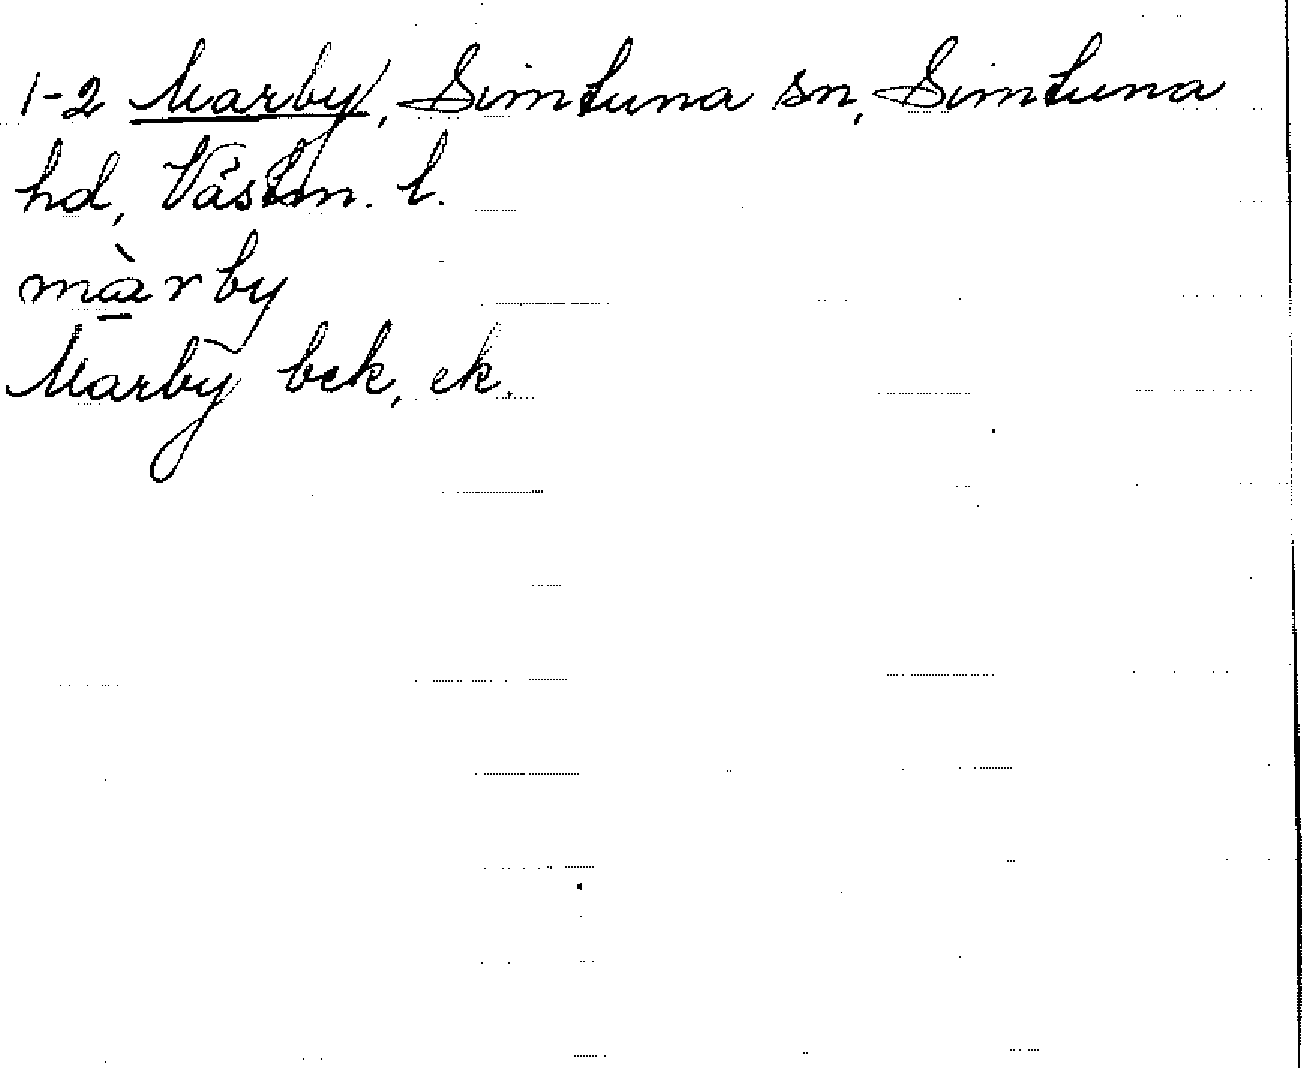 1-2 Marby, Simtuna sn, Simtuna
hd, Västm. l.
màrby
Marby bek, ek.